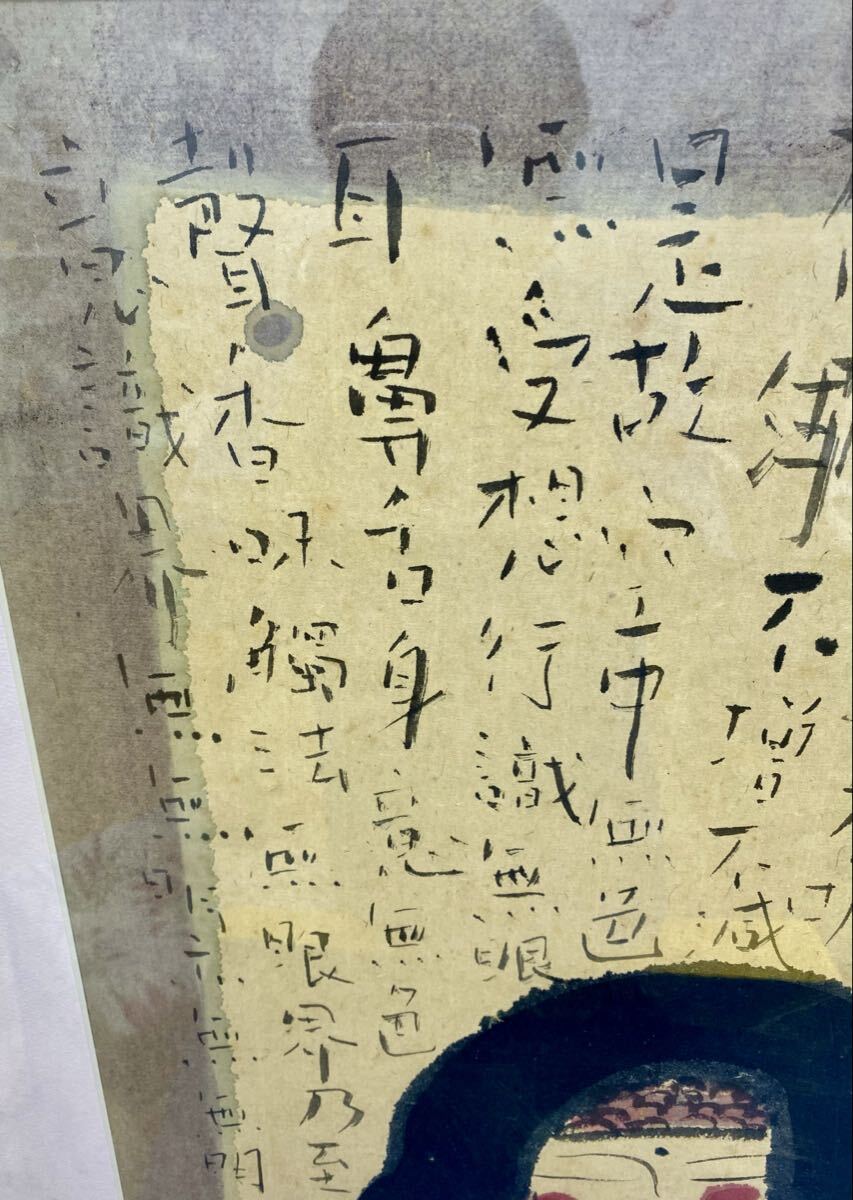 淨不增不減
是故空中無色
無受想行識無眼
耳鼻舌身意無色
聲香味觸法無眼界乃至
意識界無無明亦無無明